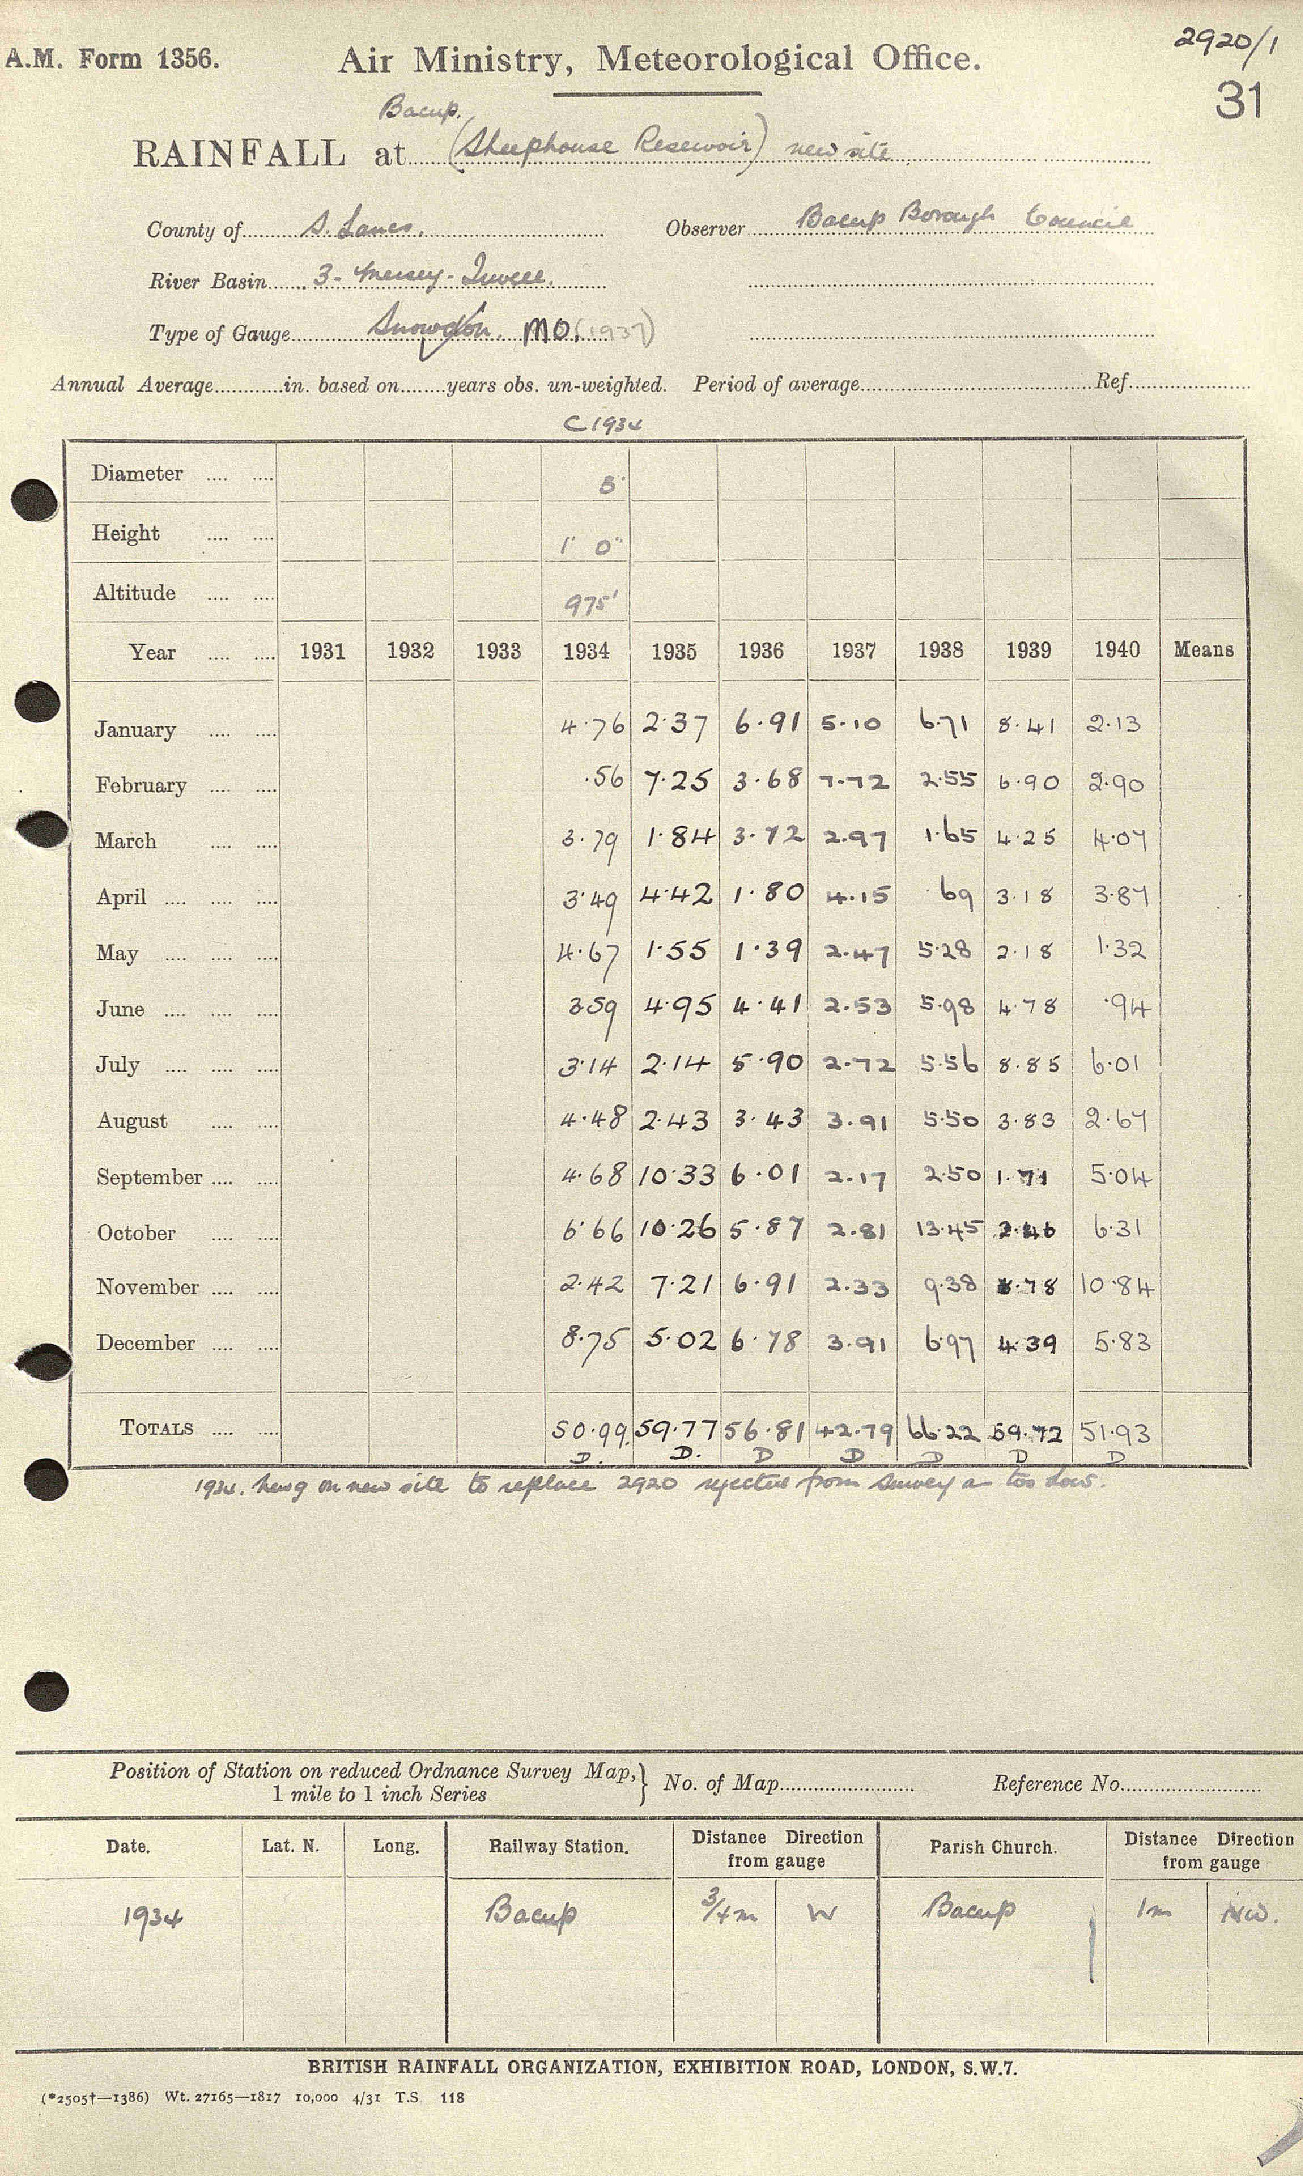 2920/1
A.M. Form 1356. Air Ministry, Meteorological Office.
31
Bacup.
RAINFALL at (Sheephouse Resevoir) new site
County of S. Lancs. Observer Bacup Borough Council
River Basin 3- Mersey- Irwell.
Type of Gauge Snowdon. MO. (1937)
Annual Average in. based on years obs. un-weighted. Period of average Ref
C 1934
Diameter 5"
Height 1' 0"
Altitude 975'
Year 1931 1932 1933 1934 1935 1936 1937 1938 1939 1940 Means
January 4.76 2.37 6.91 5.10 6.71 8.41 2.13
February .56 7.25 3.68 7.72 2.55 6.90 2.90
March 3.79 1.84 3.72 2.97 1.65 4.25 4.07
April 3.49 4.42 1.80 4.15 .69 3.18 3.87
May 4.67 1.55 1.39 2.47 5.28 2.18 1.32
June 3.59 4.95 4.41 2.53 5.98 4.78 .94
July 3.14 2.14 5.90 2.72 5.56 8.85 6.01
August 4.48 2.43 3.43 3.91 5.50 3.83 2.67
September 4.68 10.33 6.01 2.17 2.50 1.71 5.04
October 6.66 10.26 5.87 2.81 13.45 2.46 6.31
November 2.42 7.21 6.91 2.33 9.38 8.78 10.84
December 8.75 5.02 6.78 3.91 6.97 4.39 5.83
TOTALS 50.99 59.77 56.81 42.79 66.22 59.72 51.93
D. D. D D D D D
1934. new g on new site to replace 2920 rejected from survey as too low.
Position of Station on reduced Ordnance Survey Map, 1 mile to 1 inch Series } No. of Map Reference No.
Date. Lat. N. Long. Railway Station. Distance Direction from gauge Parish Church. Distance Direction from gauge
1934 Bacup 3/4 m W Bacup 1m NW.
BRITISH RAINFALL ORGANIZATION, EXHIBITION ROAD, LONDON, S.W.7.
(*2505†—1386) Wt. 27165—1817 10,000 4/31 T.S. 118